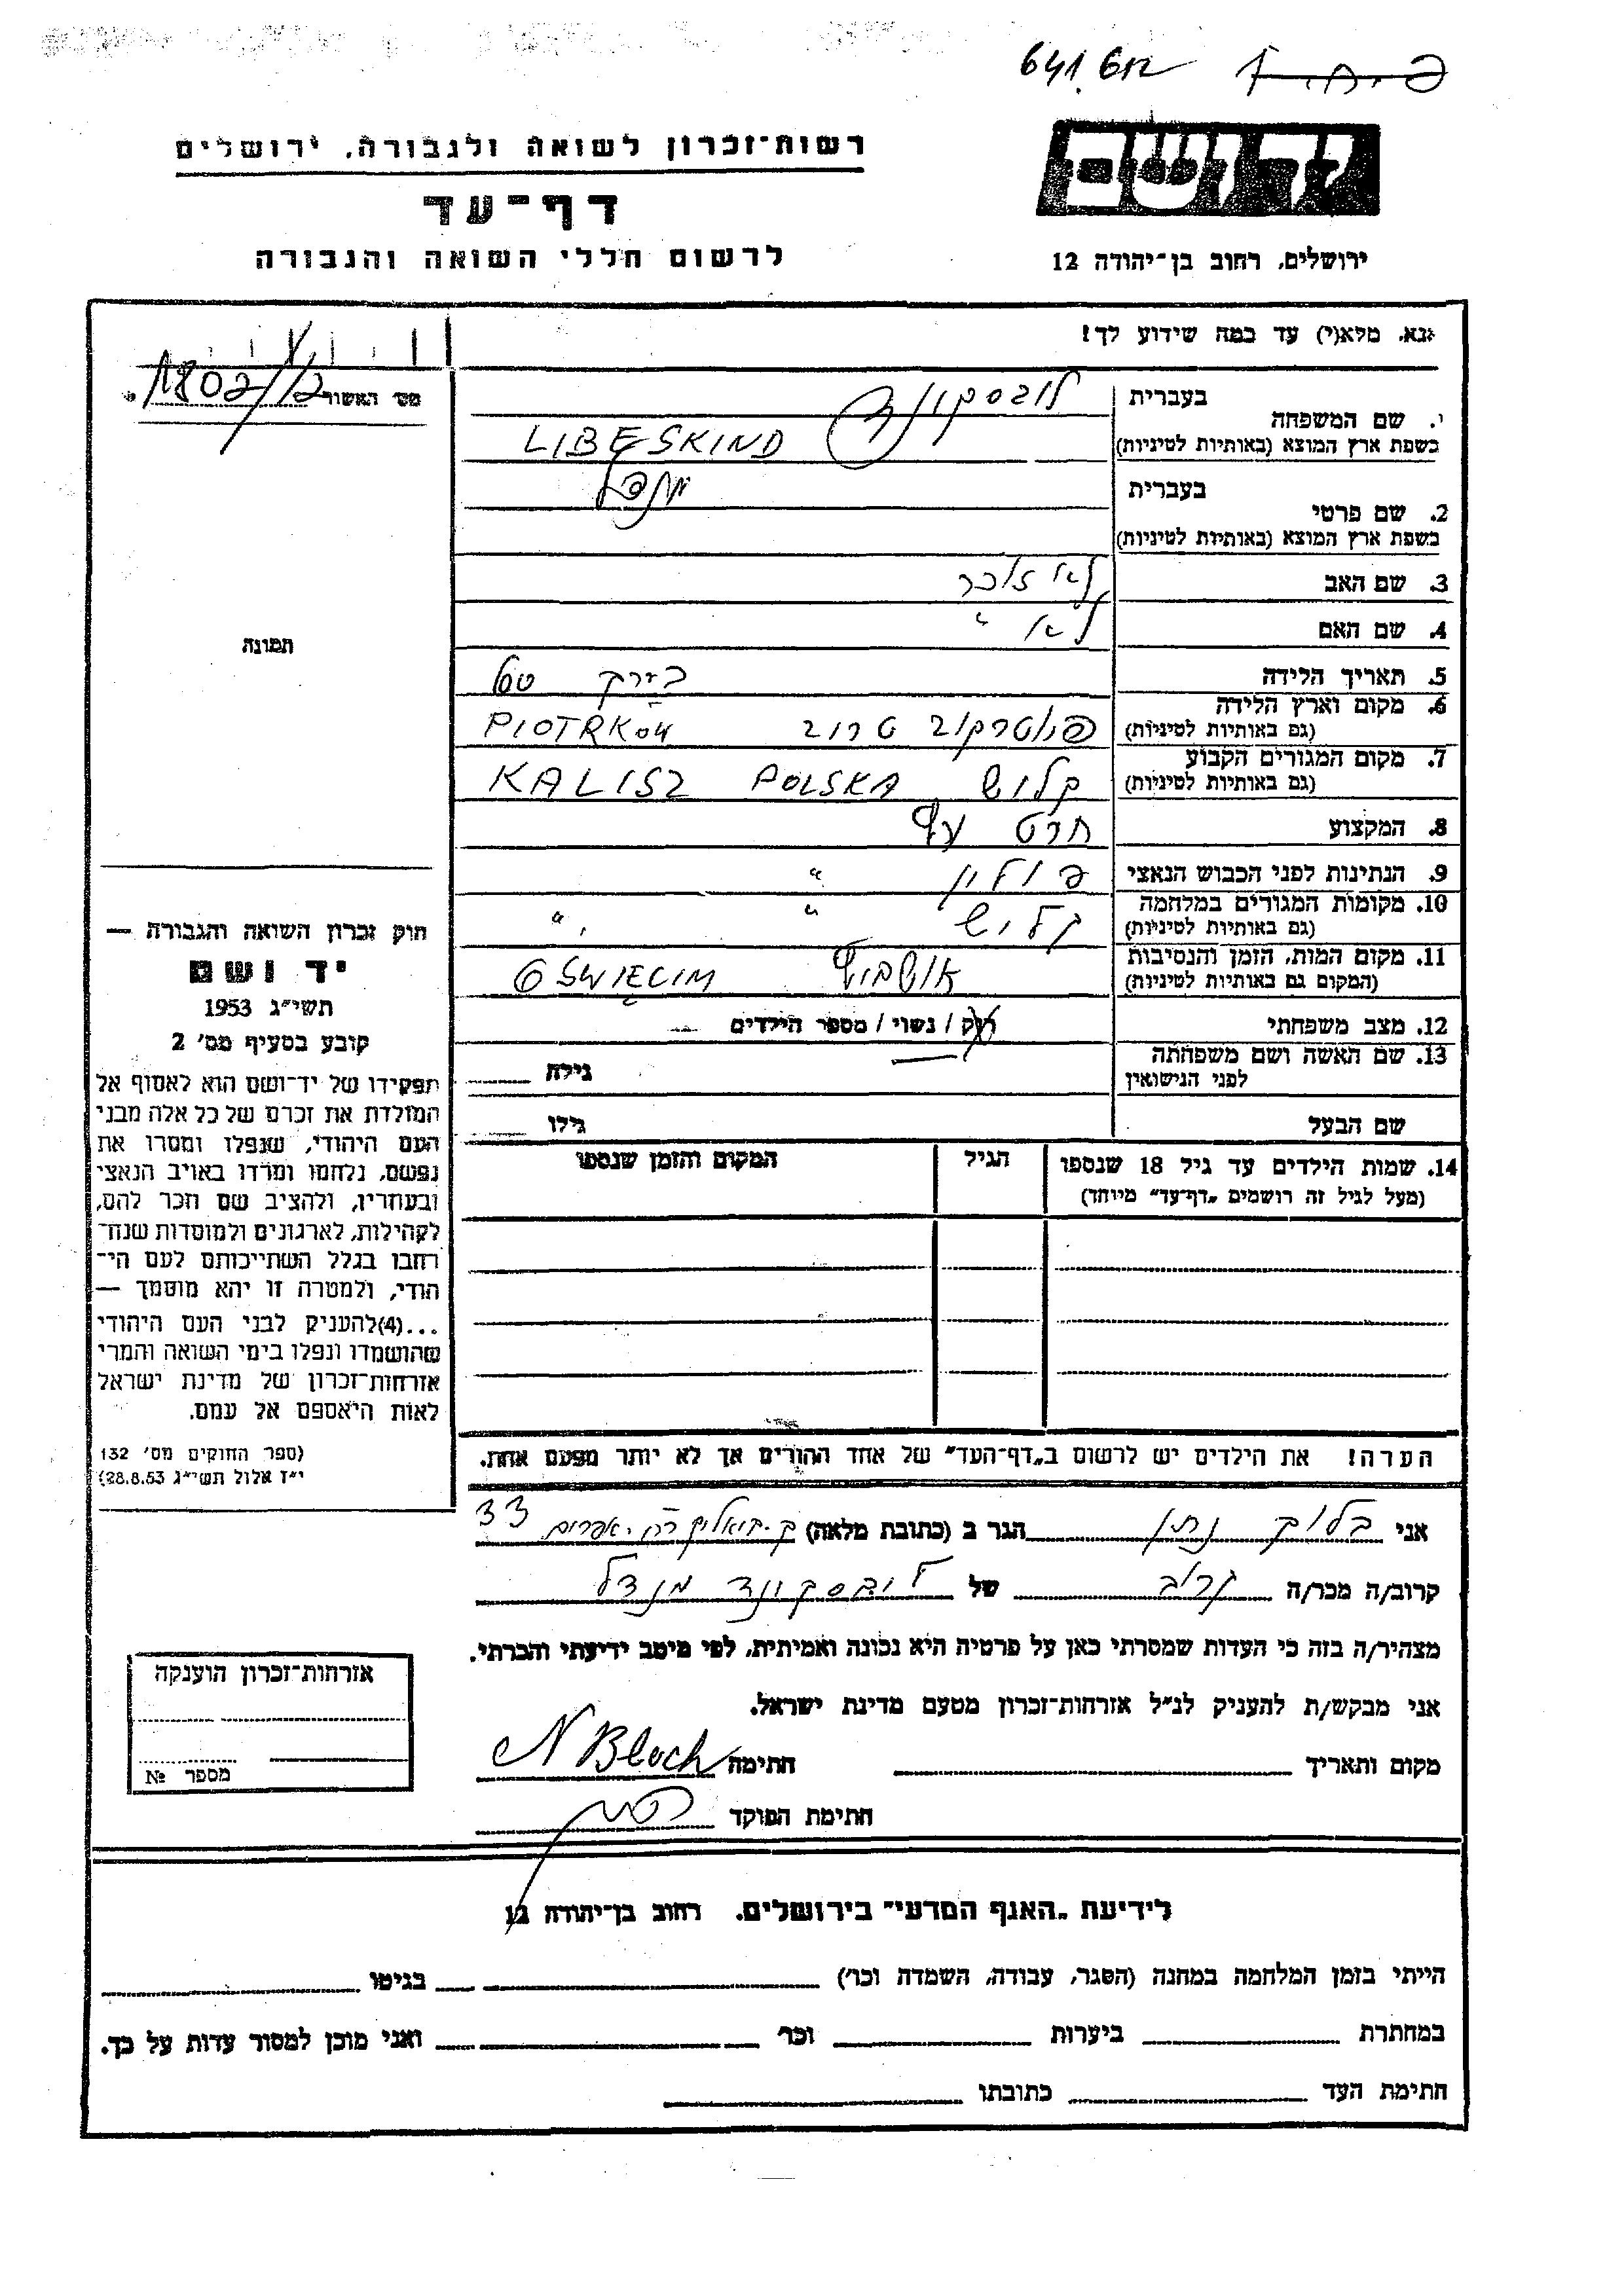 641.612
רשות־זכרון לשואה ולגבורה, ירושלים
דף־עד
לרשום חללי השואה והגבורה
יד ושם
ירושלים, רחוב בן־יהודה 12
נא, מלא(י) עד כמה שידוע לך!
מס' האשור 1802/12
בעברית
1. שם המשפחה
בשפת ארץ המוצא (באותיות לטיניות) LIBESKIND
בעברית
2. שם פרטי
בשפת ארץ המוצא (באותיות לטיניות)
3. שם האב לא זוכר
4. שם האם לא "
5. תאריך הלידה בערך
6. מקום וארץ הלידה פיוטרקוב טריב PIOTRKOW
(גם באותיות לטיניות)
7. מקום המגורים הקבוע קליש KALISZ POLSKA
(גם באותיות לטיניות)
8. המקצוע חרט עץ
9. הנתינות לפני הכבוש הנאצי פולין "
10. מקומות המגורים במלחמה קליש " "
(גם באותיות לטיניות)
11. מקום המות, הזמן והנסיבות אושביץ OŚWIĘCIM
(המקום גם באותיות לטיניות)
12. מצב משפחתי רוק / נשוי / מספר הילדים
13. שם האשה ושם משפחתה גילה
לפני הנישואין
שם הבעל גילו
14. שמות הילדים עד גיל 18 שנספו הגיל המקום והזמן שנספו
(מעל לגיל זה רושמים „דף־עד" מיוחד)
תמונה
חוק זכרון השואה והגבורה —
יד ושם
תשי"ג 1953
קובע בסעיף מס' 2
תפקידו של יד־ושם הוא לאסוף אל
המולדת את זכרם של כל אלה מבני
העם היהודי, שנפלו ומסרו את
נפשם, נלחמו ומרדו באויב הנאצי
ובעוזריו, ולהציב שם וזכר להם,
לקהילות, לארגונים ולמוסדות שנח־
רבו בגלל השתייכותם לעם הי־
הודי, ולמטרה זו יהא מוסמך —
...(4) להעניק לבני העם היהודי
שהושמדו ונפלו בימי השואה והמרי
אזרחות־זכרון של מדינת ישראל
לאות היאספם אל עמם.
(ספר החוקים מס' 132
י"ז אלול תשי"ג 28.8.53)
הערה! את הילדים יש לרשום ב„דף־העד" של אחד ההורים אך לא יותר מפעם אחת.
אני בלוך נתן הגר ב (כתובת מלאה) 33
קרוב/ה מכר/ה קרוב של ליבסקינד מנדל
מצהיר/ה בזה כי העדות שמסרתי כאן על פרטיה היא נכונה ואמיתית, לפי מיטב ידיעתי והכרתי.
אני מבקש/ת להעניק לנ"ל אזרחות־זכרון מטעם מדינת ישראל.
מקום ותאריך חתימה N Bloch
חתימת הפוקד
אזרחות־זכרון הוענקה
מספר №
לידיעת „האגף המדעי" בירושלים. רחוב בן־יהודה 12
הייתי בזמן המלחמה במחנה (הסגר, עבודה, השמדה וכו') בגיטו
במחתרת ביערות וכו' ואני מוכן למסור עדות על כך.
חתימת העד כתובתו